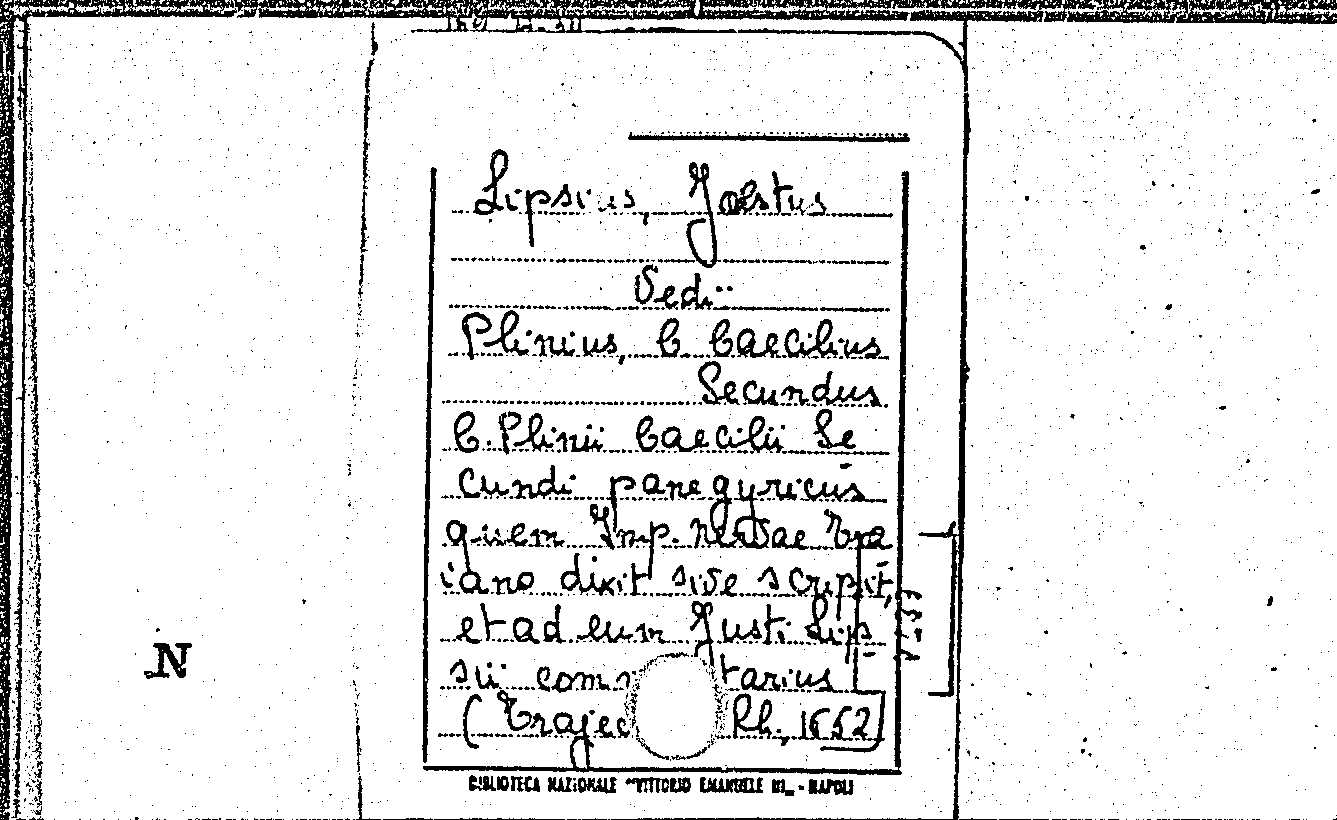 Lipsius, Justus
Vedi
Plinius, C Caecilius
Secundus
C. Plinii Caecilii Se
cundi panegyricus
quem Imp. Nervae Tra
iano dixit sive scripsit,
et ad eum Justi Lip
sii comm tarius
(Trajec Rh., 1652
BIBLIOTECA NAZIONALE "VITTORIO EMANUELE III„ - NAPOLI
N